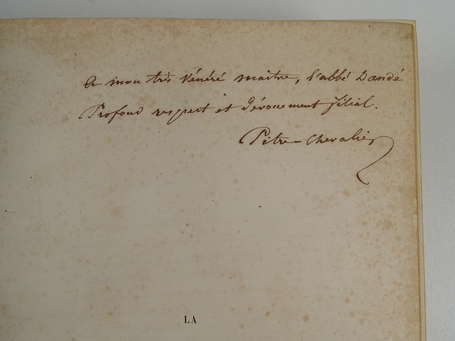 A mon très vénéré maitre, l'abbé Dandé
Profond respect et dévouement filial.
Pitre-Chevalier
LA